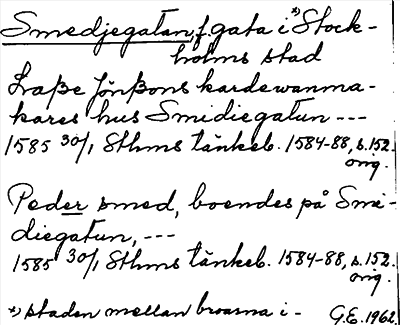 Smedjegatan, f. gata i *) Stock-
holms stad
Lasse Jönssons kardewanma-
kares hus Smidiegatun ---
1585 30/1 Sthms tänkeb. 1584-88, s. 152.
orig.
Peder smed, boendes på Smi-
diegatun, ---
1585 30/1 Sthms tänkeb. 1584-88, s. 152.
orig.
*) staden mellan broarna i - G.E. 1962.